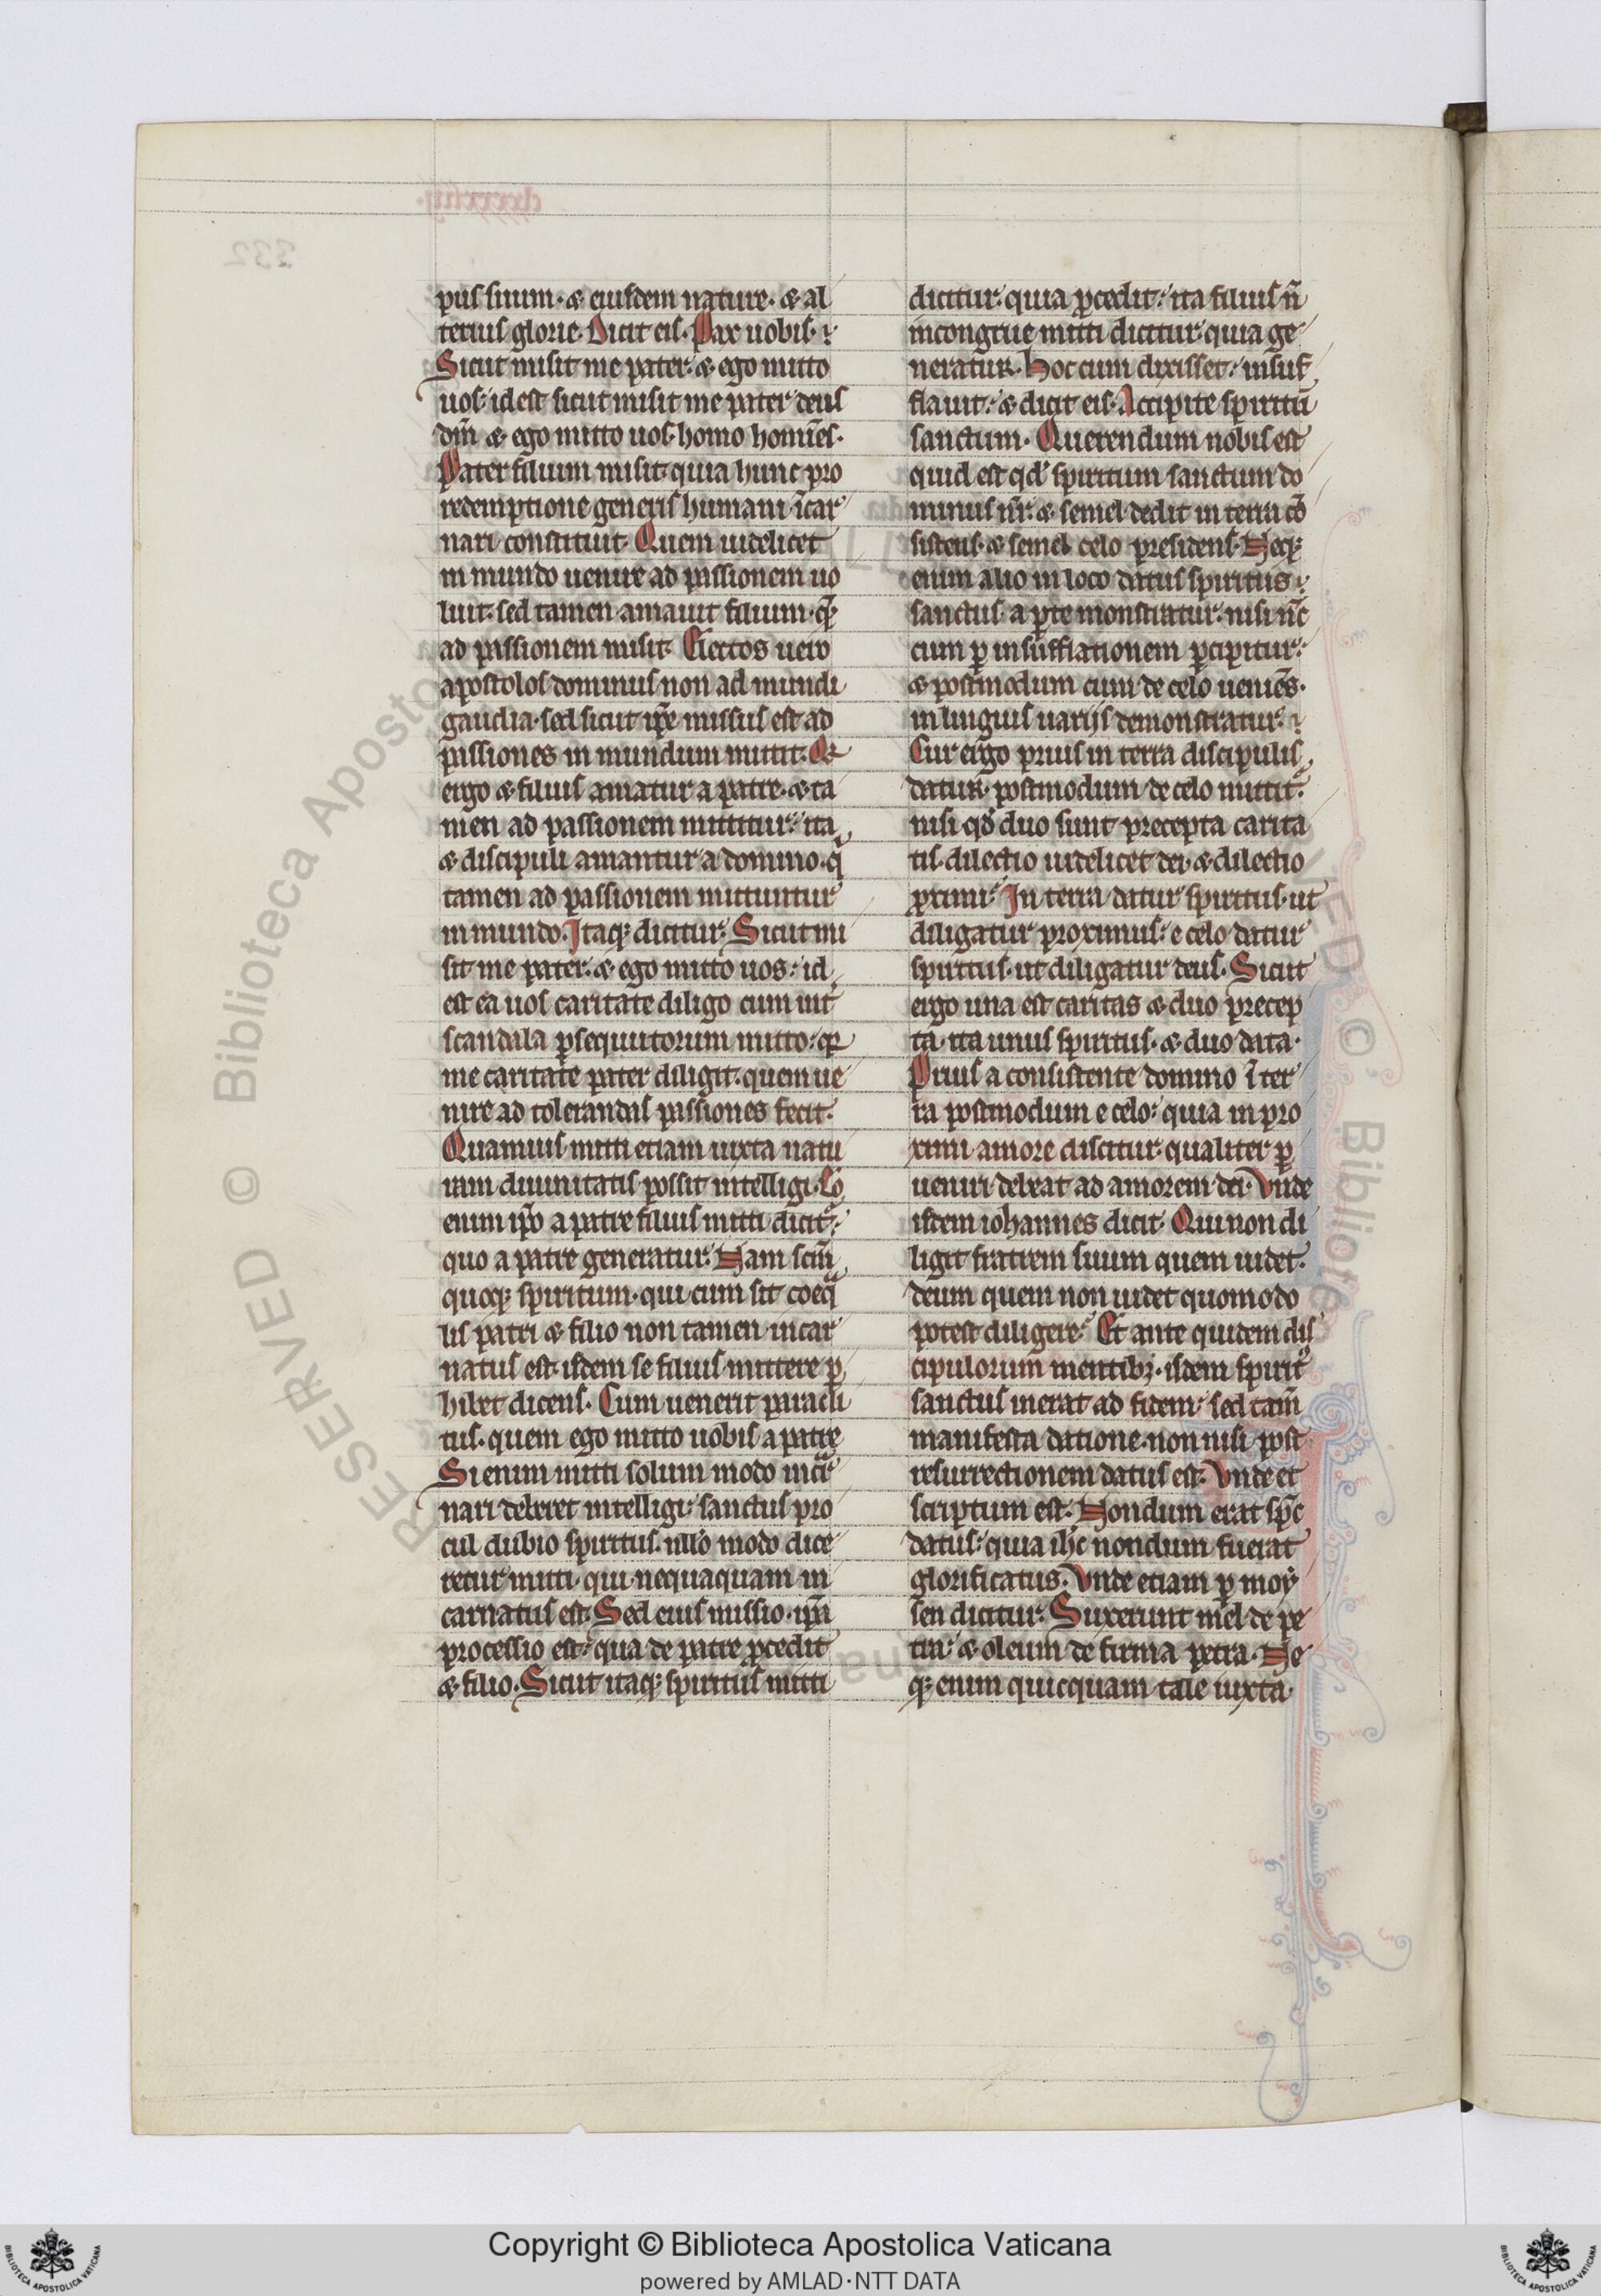 pus suum. & eiusdem nature. & al
terius glorie. Dicit eis. Pax uobis.
Sicut misit me pater. & ego mitto
uos. id est sicut misit me pater deus
dm̄ & ego mitto uos homo homīes.
Pater filium misit. quia hunc pro
redemptione generis humani īcar
nari constituit. Quem uidelicet
in mundo uenire ad passionem uo
luit. sed tamen amauit filium. quē
ad passionem misit. Electos uero
apostolos dominus non ad mundi
gaudia. sed sicut ip̄e missus est ad
passiones in mundum mittit. Qr
ergo & filius amatur a patre. & ta
men ad passionem mittitur. ita
& discipuli amantur a domino. qͥ
tamen ad passionem mittuntur
in mundo. Itaq; dicitur. Sicut mi
sit me pater. & ego mitto uos. id
est ea uos caritate diligo cum int̄
scandala ꝑsequutorum mitto. q̄
me caritate pater diligit. quem ue
nire ad tolerandas passiones fecit.
Quamuis mitti etiam iuxta natu
ram diuinitatis possit intelligi. Eo
enim ip̄o a patre filius mitti dicit᷑.
quo a patre generatur. Nam scm̄
quoq; spiritum. qui cum sit coeqͣ
lis patri & filio non tamen incar
natus est. isdem se filius mittere ꝑ
hibet dicens. Cum uenerit paracli
tus. quem ego mitto uobis a patre
Si enim mitti solum modo incͣr
nari deberet intelligi. sanctus pro
cul dubio spiritus. nllo modo dice
retur mitti. qui nequaquam in
carnatus est. Sed eius missio. ip̄a
processio est. qua de patre ꝓcedit
& filio. Sicut itaq; spiritus mitti
dicitur. quia ꝓcedit. ita filius n̄
incongrue mitti dicitur. quia ge
neratur. Hoc cum dixisset. insuf
flauit. & dicit eis. Accipite spiritū
sanctum. Querendum nobis est
quid est qd̄ spiritum sanctum do
minus nr̄. & semel dedit in terra cō
sistens. & semel celo presidens. Neq;
enim alio in loco datus spiritus
sanctus. aperte monstratur. nisi nc̄
cum ꝑ insufflationem ꝑcipitur.
& postmodum cum de celo ueniēs.
in linguis uarijs demonstratur.
Cur ergo prius in terra discipulis
datur. postmodum de celo mittit᷑.
nisi qd̄ duo sunt precepta carita
tis. dilectio uidelicet dei. & dilectio
ꝓximi. In terra datur spiritus. ut
diligatur proximus. e celo datur
spiritus. ut diligatur deus. Sicut
ergo una est caritas & duo precep
ta. ita unus spiritus. & duo data.
Prius a consistente domino ī ter
ra postmodum e celo. quia in pro
ximi amore discitur. qualiter ꝑ
ueniri debeat ad amorem dei. Vnde
isdem iohannes dicit. Qui non di
ligit fratrem suum quem uidet.
deum quem non uidet quomodo
potest diligere. Et ante quidem dis
cipulorum mentib;. isdem spirit᷒
sanctus inerat ad fidem. sed tam̄
manifesta datione. non nisi post
resurrectionem datus est. Vnde et
scriptum est. Nondum erat spc̄
datus. quia ihc̄ nondum fuerat
glorificatus. Vnde etiam ꝑ moy
sen dicitur. Suxerunt mel de pe
tra. & oleum de firma petra. Ne
q; enim quicquam tale iuxta
RESERVED © Biblioteca Apostolica
Copyright © Biblioteca Apostolica Vaticana
powered by AMLAD·NTT DATA